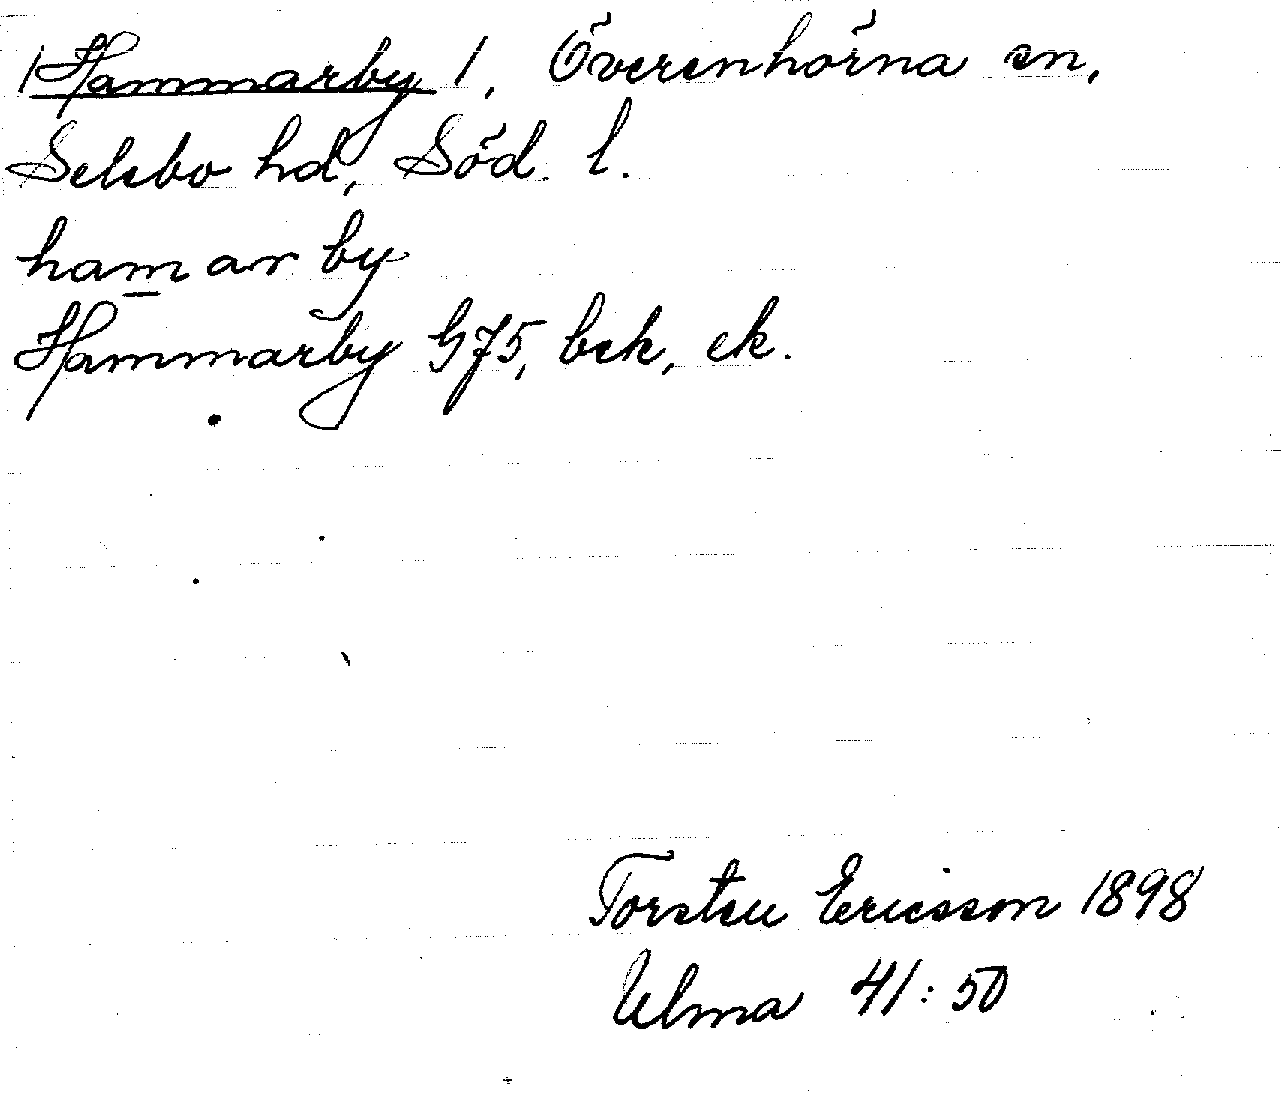 /Hammarby/, Överenhörna sn,
Selebo hd, Söd. l.
hamarby
Hammarby G75, bek, ek.
Torsten Ericsson 1898
Ulma 41:50